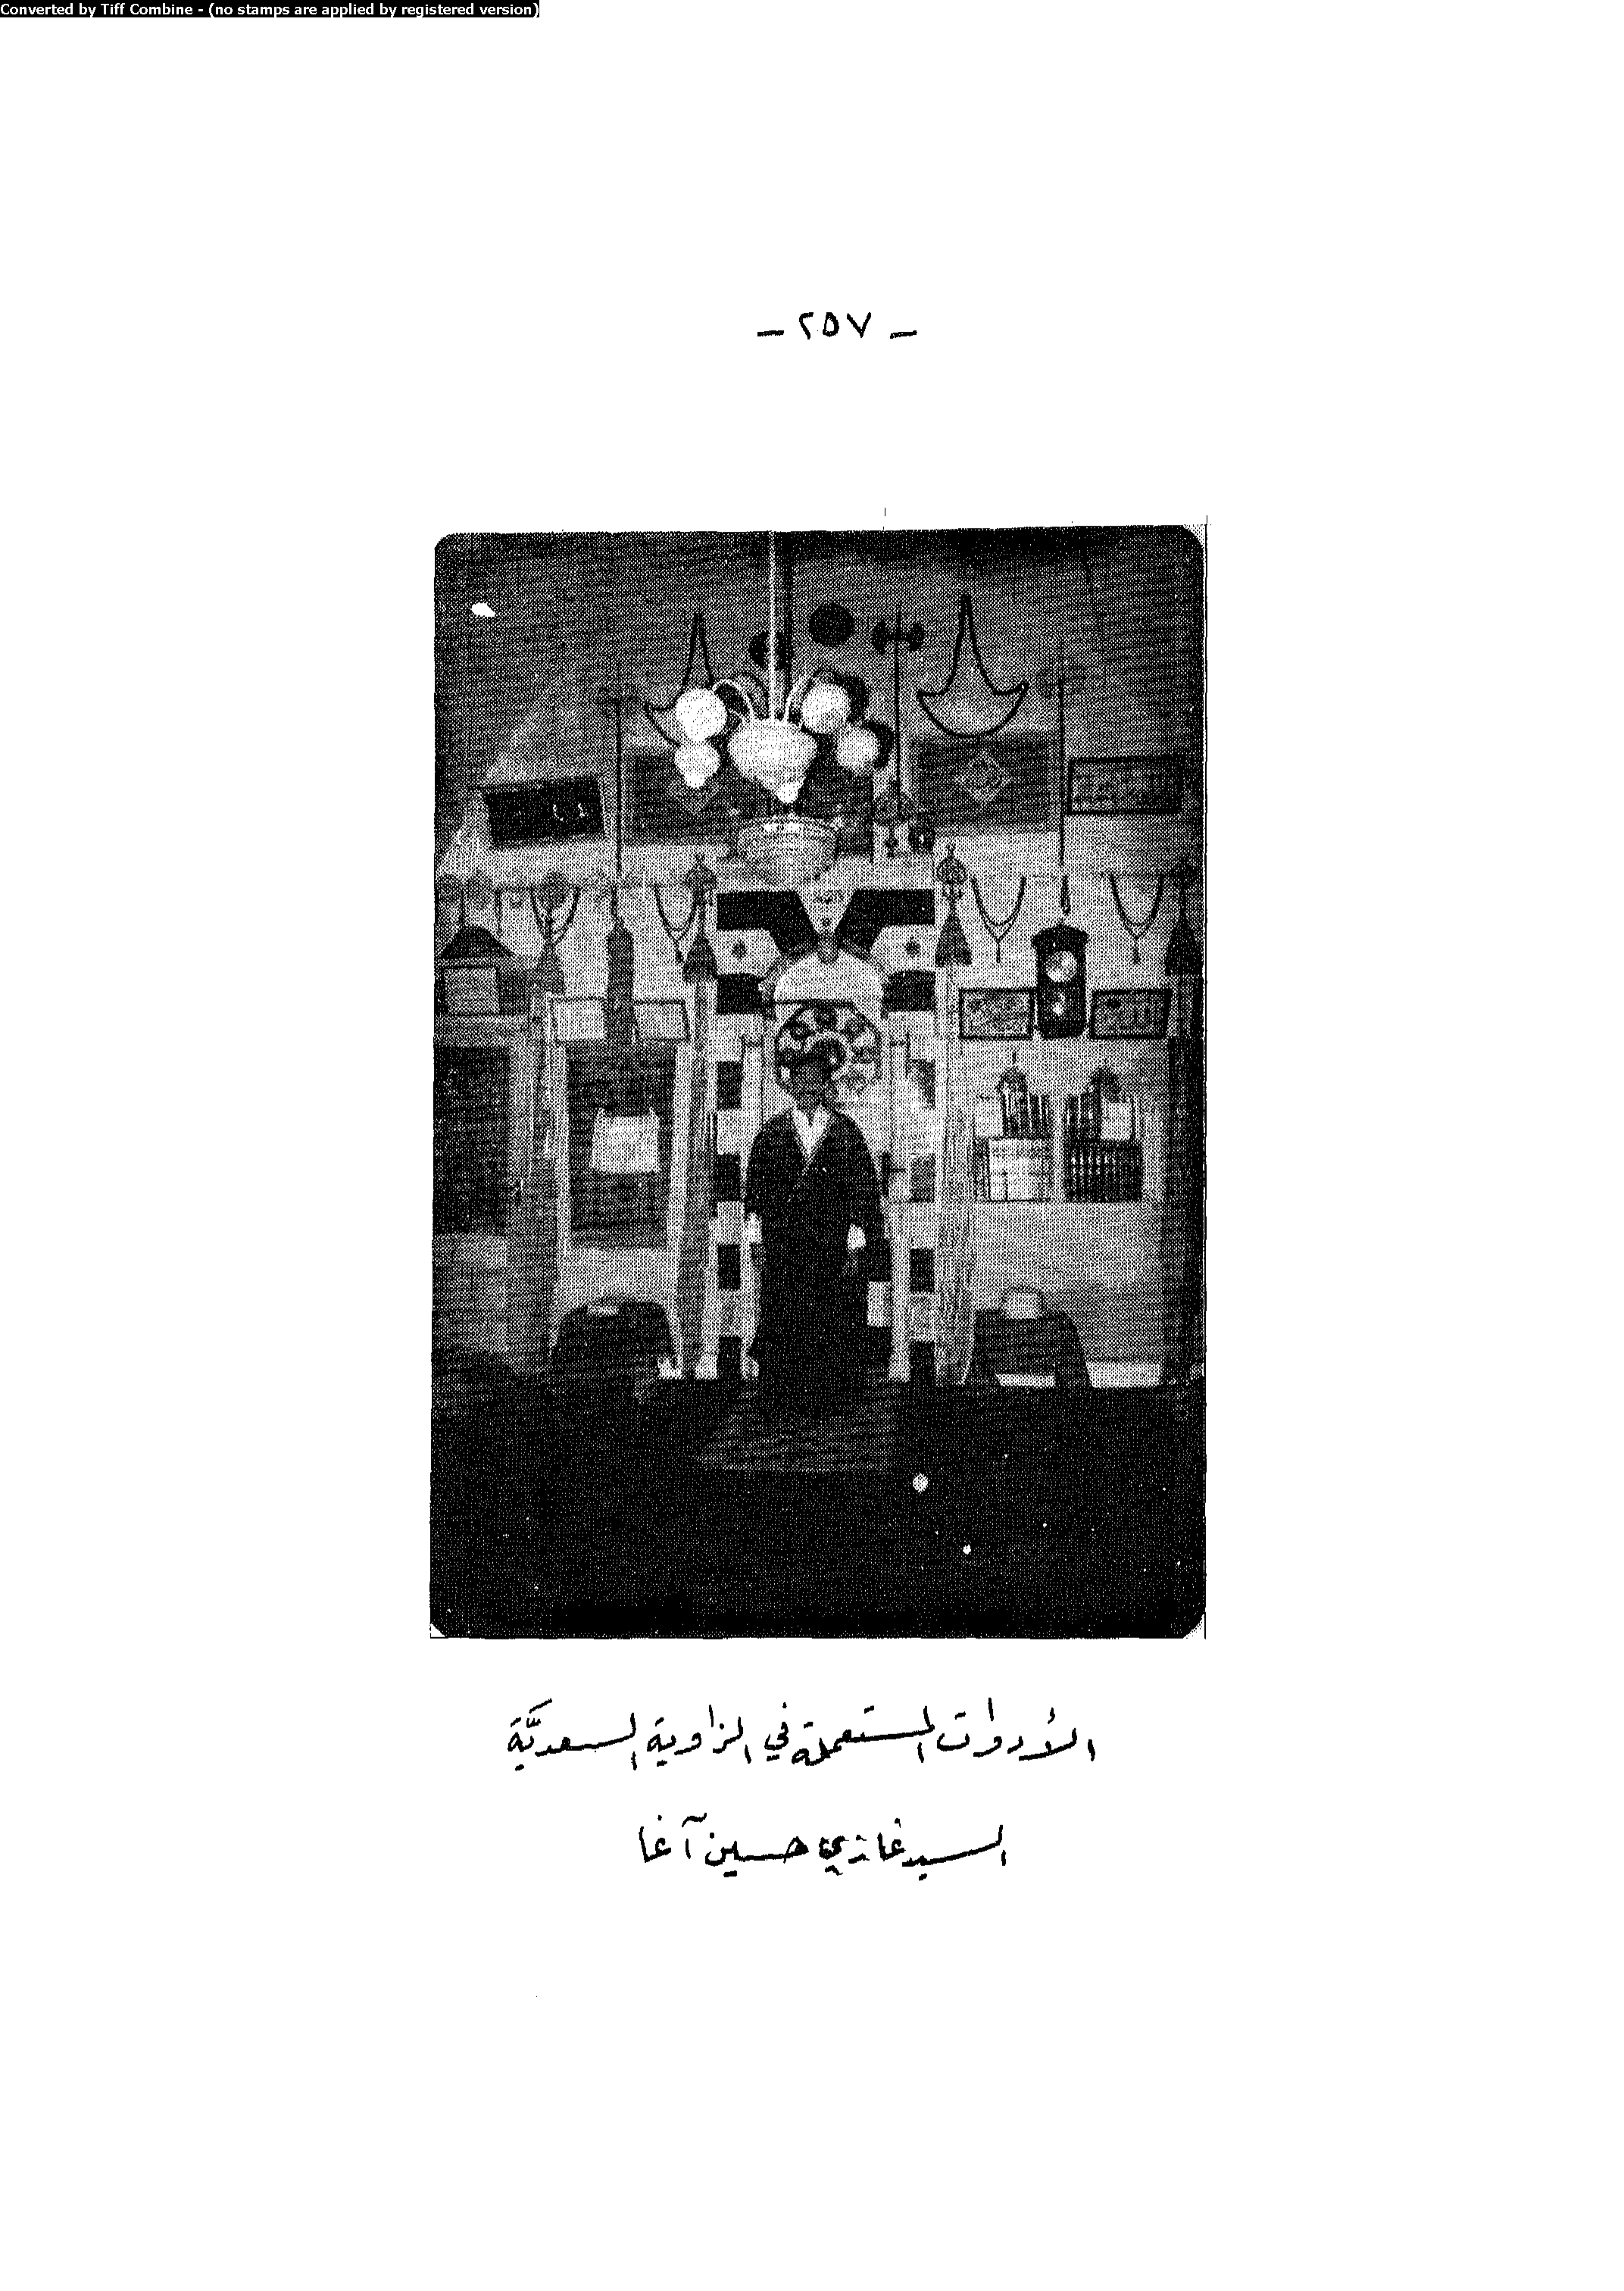 Converted by Tiff Combine - (no stamps are applied by registered version)
- ٢٥٧ -
الأدوات المستعملة في الزاوية السعديَّة
السيد غازي حسين آغا